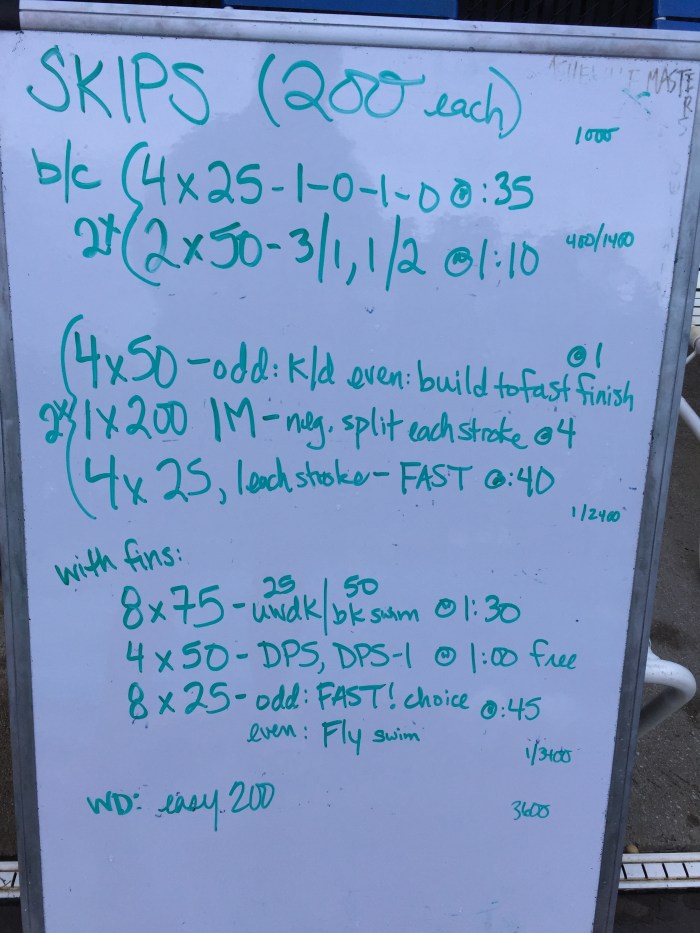 SKIPS (200 each)
ASHEVILLE MASTERS
1000
b/c (4 x 25 - 1-0-1-0 @ :35
2x (2 x 50 - 3/1, 1/2 @ 1:10
400/1400
(4 x 50 - odd: K/d even: build to fast finish @ 1
2x 1 x 200 IM - neg. split each stroke @ 4
4 x 25, 1 each stroke - FAST @ :40
1/2400
with fins:
25 50
8 x 75 - uwdk/bk swim @ 1:30
4 x 50 - DPS, DPS-1 @ 1:00 free
8 x 25 - odd: FAST! choice @ :45
even: Fly swim
1/3400
WD: easy 200
3600